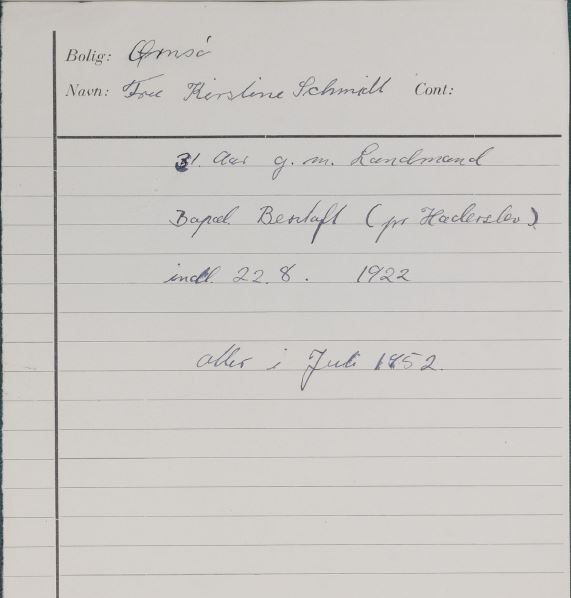 Bolig: Ørnsö
Navn: Frue Kirstine Schmidt Cont:
31. Aar g. m. Landmand
Bopæl. Bestoft (pr Haderslev)
indl. 22. 8. 1922
atter i Juli 1952.